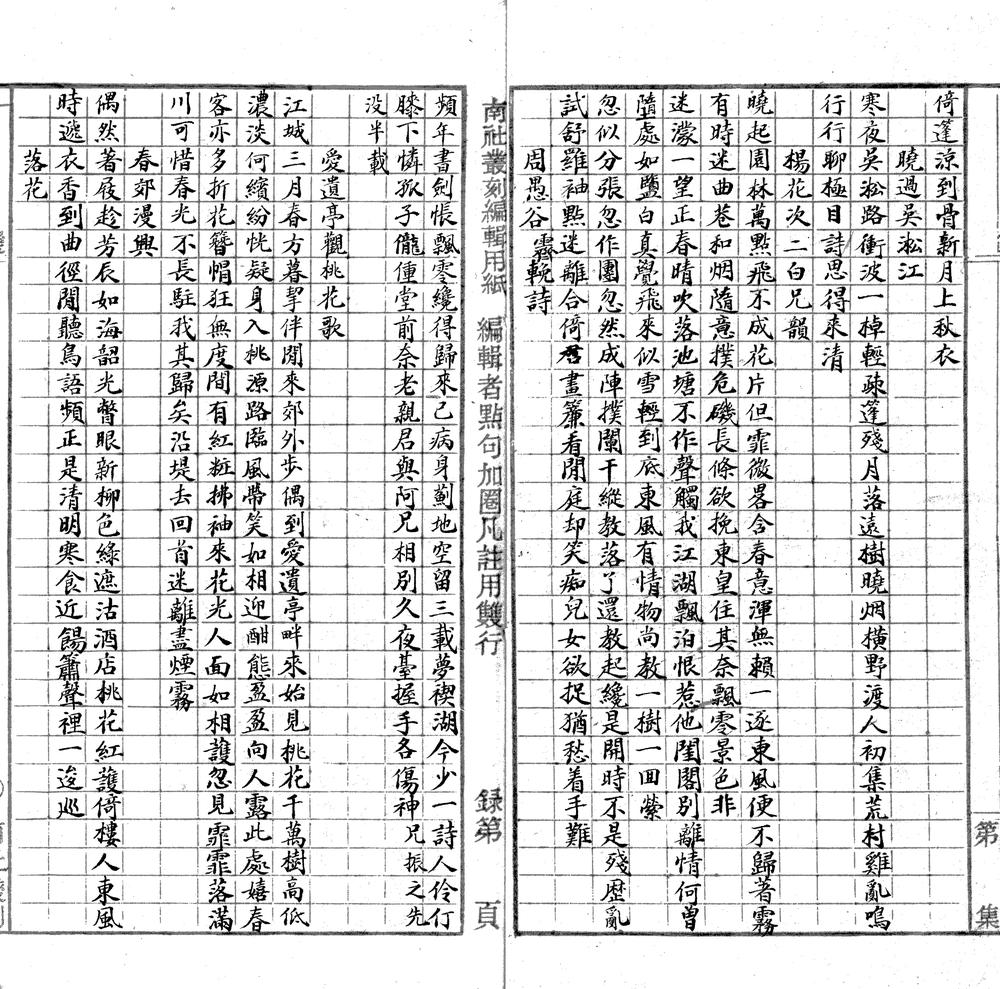 倚篷涼到骨新月上秋衣
曉過吳淞江
寒夜吳淞路衝波一棹輕疎篷殘月落遠樹曉烟橫野渡人初集荒村雞亂鳴
行行聊極目詩思得來清
楊花次二白兄韻
曉起園林萬點飛不成花片但霏微畧含春意渾無賴一逐東風便不歸著霧
有時迷曲巷和烟隨意撲危磯長條欲挽東皇住其奈飄零景色非
迷濛一望正春晴吹落池塘不作聲觸我江湖飄泊恨惹他閨閣別離情何曾
隨處如鹽白真覺飛來似雪輕到底東風有情物尚教一樹一回縈
忽似分張忽作團忽然成陣撲闌干縱教落了還教起纔是開時不是殘歷亂
試舒羅袖點迷離合倚畫簾看閒庭却笑痴兒女欲捉猶愁着手難
周愚谷霽輓詩
第
集
南社叢刻編輯用紙
編輯者點句加圈凡註用雙行
錄第
頁
頻年書劍悵飄零纔得歸來已病身薊地空留三載夢禊湖今少一詩人伶仃
膝下憐孤子儱偅堂前奈老親君與阿兄相別久夜臺握手各傷神兄振之先
没半載
愛遺亭觀桃花歌
江城三月春方暮挈伴閒來郊外步偶到愛遺亭畔來始見桃花千萬樹高低
濃淡何繽紛恍疑身入桃源路臨風帶笑如相迎酣態盈盈向人露此處嬉春
客亦多折花簪帽狂無度間有紅粧拂袖來花光人面如相護忽見霏霏落滿
川可惜春光不長駐我其歸矣沿堤去回首迷離盡煙霧
春郊漫興
偶然著屐趁芳辰如海韶光瞥眼新柳色綠遮沽酒店桃花紅護倚樓人東風
時遞衣香到曲徑閒聽鳥語頻正是清明寒食近餳簫聲裡一逡巡
落花